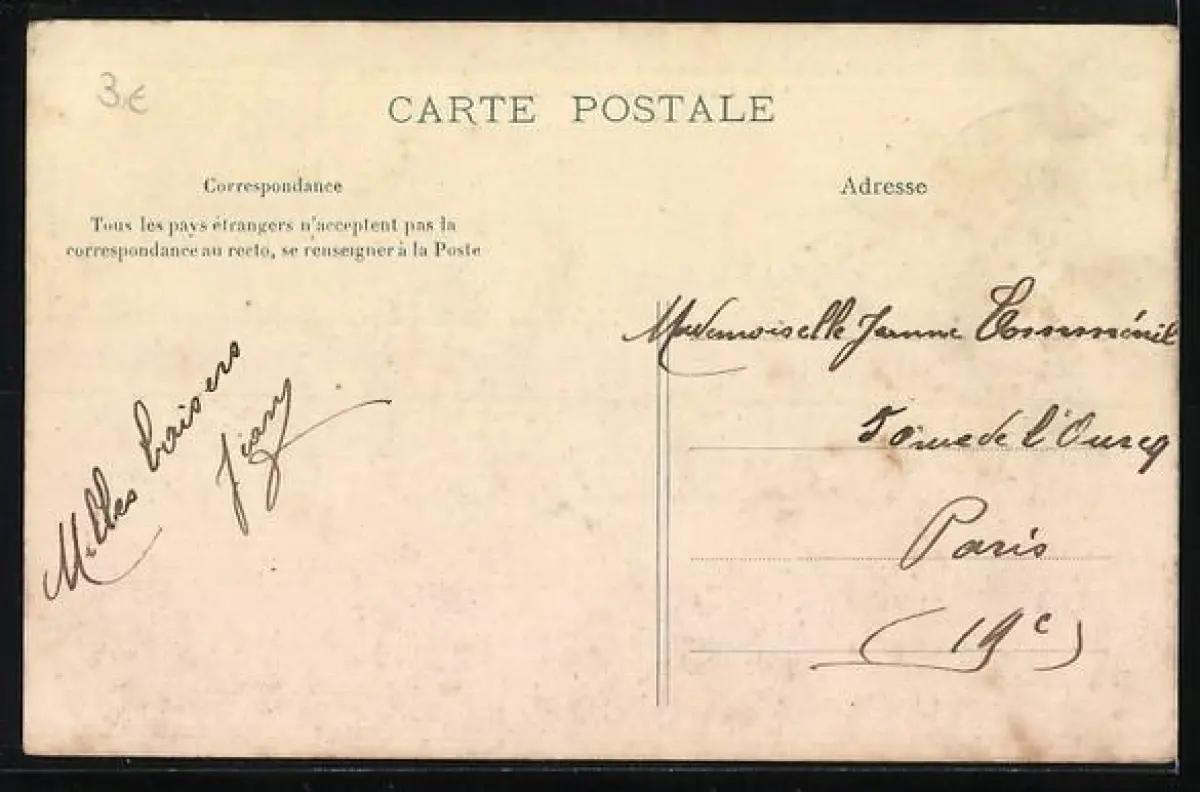 3 €
CARTE POSTALE
Correspondance
Tous les pays étrangers n'acceptent pas la
correspondance au recto, se renseigner à la Poste
Adresse
Milles baisers
Mademoiselle Jeanne
rue de l'Ourcq
Paris
(19e)